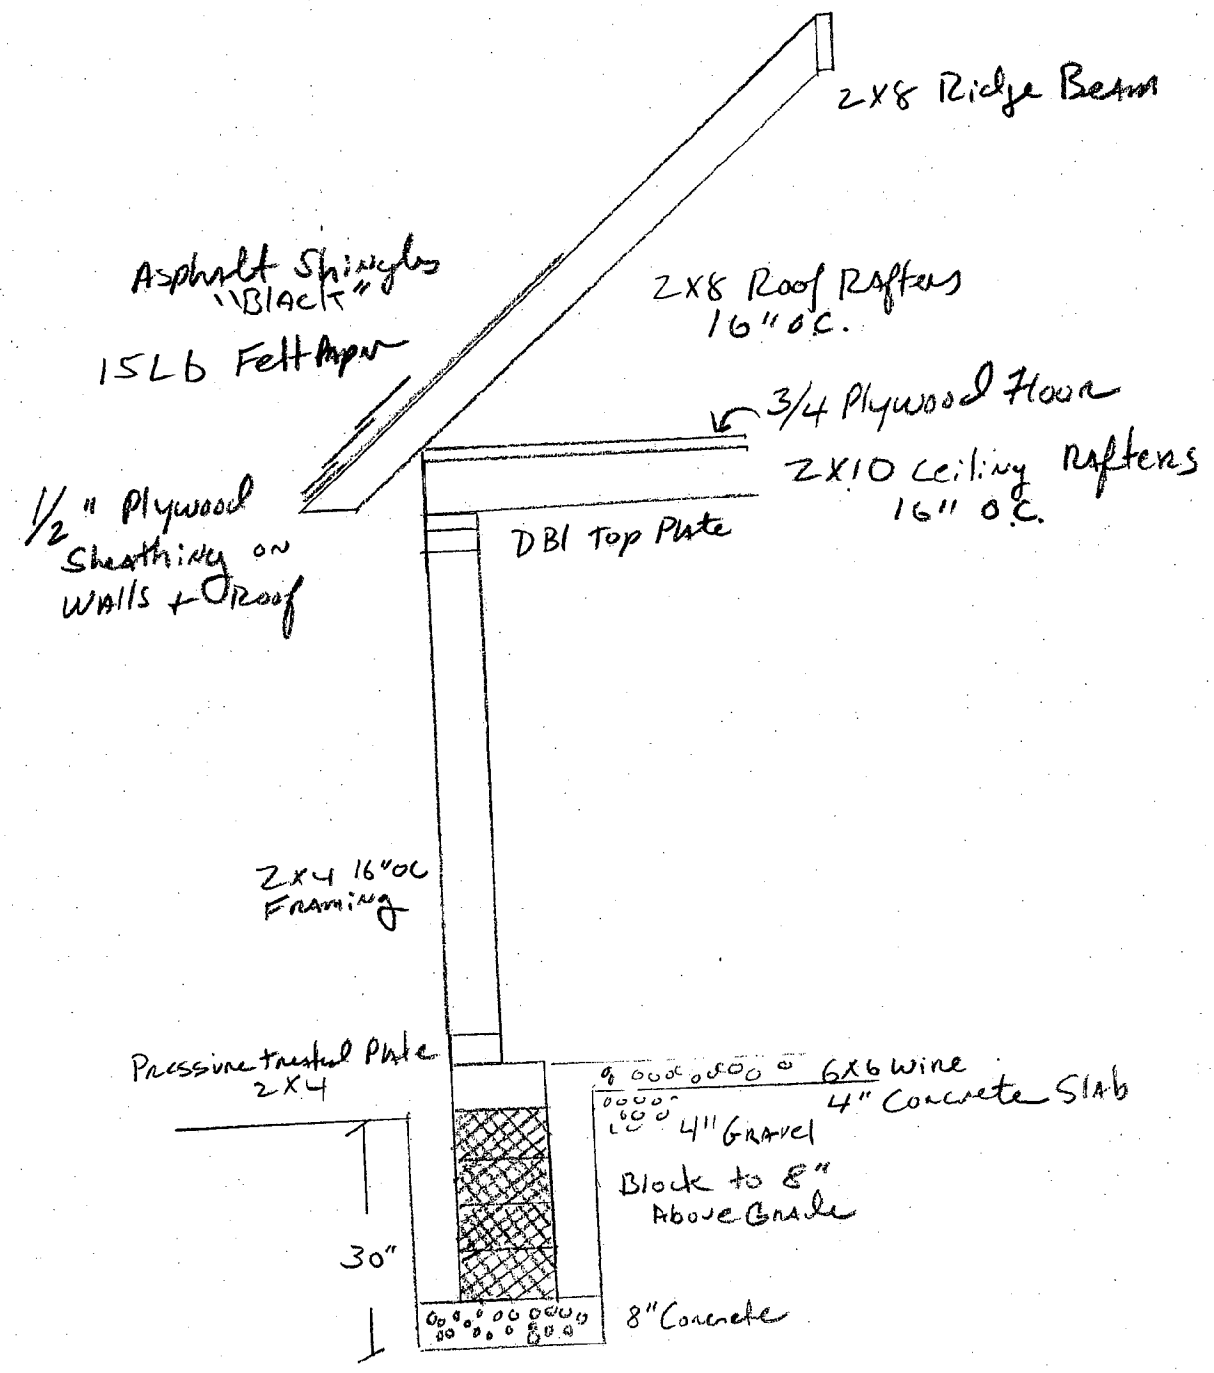 2x8 Ridge Beam
Asphalt Shingles
"Black"
15Lb Felt Paper
2x8 Roof Rafters
16" O.C.
3/4 Plywood Floor
2x10 Ceiling Rafters
16" O.C.
1/2" Plywood
Sheathing on
Walls + Roof
DBl Top Plate
2x4 16"OC
Framing
Pressure treated Plate
2x4
6x6 Wire
4" Concrete Slab
4" Gravel
Block to 8"
Above Grade
30"
8" Concrete